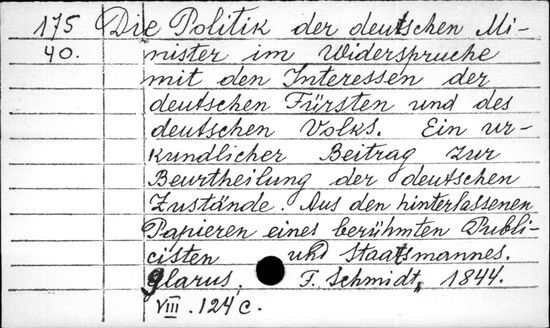 175 Die Politik der deutschen Mi-
40. nister im Widerspruche
mit den Interessen der
deutschen Fürsten und des
deutschen Volks. Ein ur-
kundlicher Beitrag zur
Beurtheilung der deutschen
Zustände. Aus den hinterlassenen
Papieren eines berühmten Publi-
cisten und Staatsmannes.
Glarus, F. Schmidt, 1844.
VIII. 124 c.